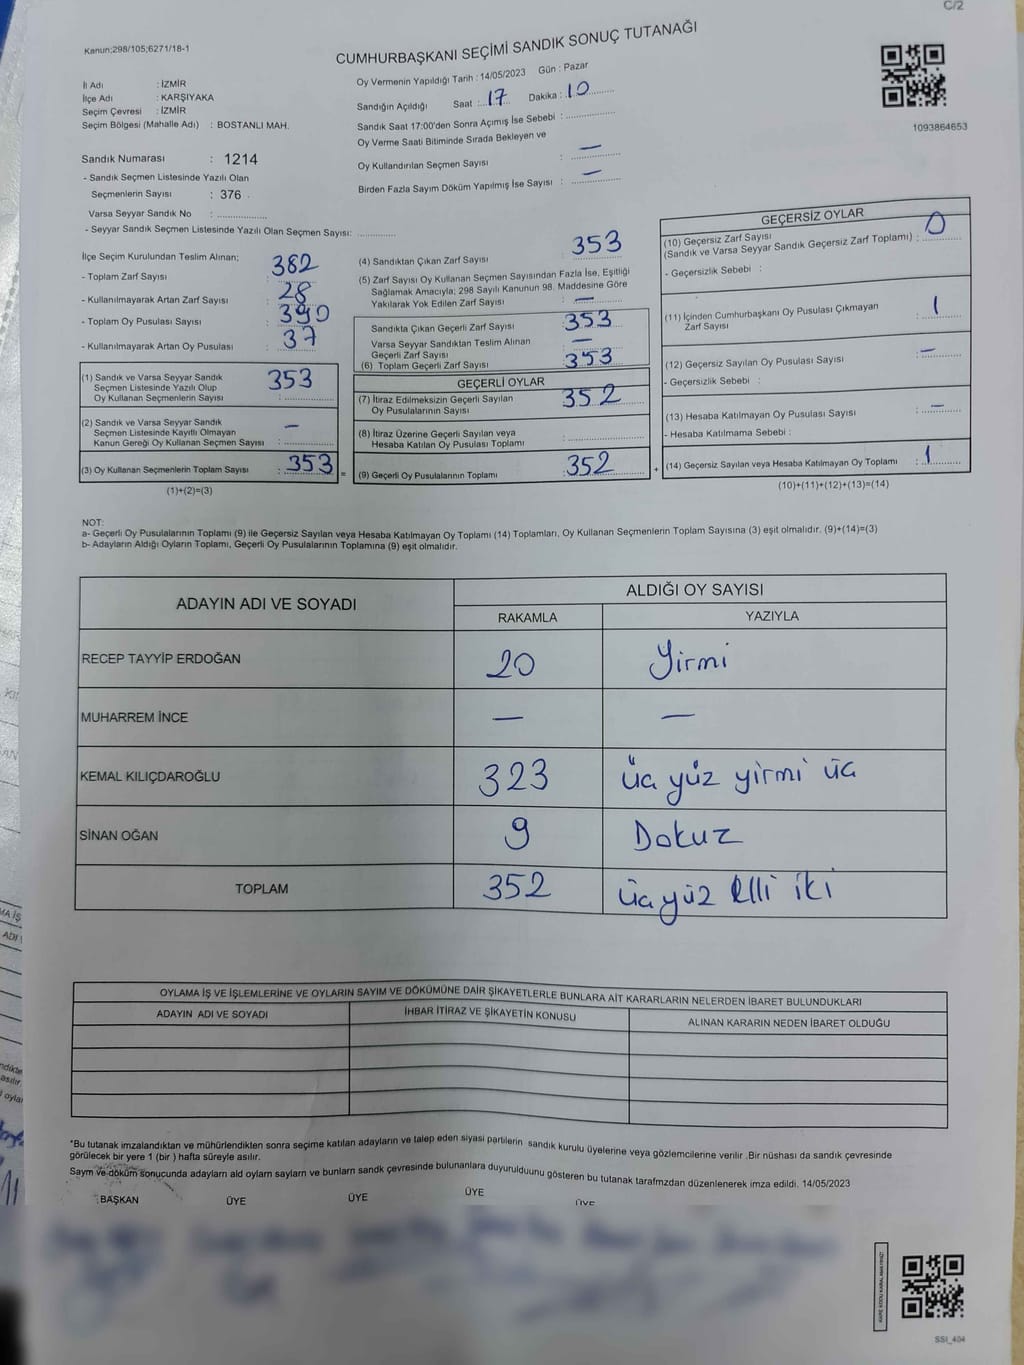 C/2
Kanun;298/105;6271/18-1
CUMHURBAŞKANI SEÇİMİ SANDIK SONUÇ TUTANAĞI
Oy Vermenin Yapıldığı Tarih : 14/05/2023 Gün : Pazar
İl Adı : İZMİR
İlçe Adı : KARŞIYAKA
Seçim Çevresi : İZMİR
Seçim Bölgesi (Mahalle Adı) : BOSTANLI MAH.
Sandığın Açıldığı Saat : 17 Dakika : 10
Sandık Saat 17:00'den Sonra Açımış İse Sebebi :
Oy Verme Saati Bitiminde Sırada Bekleyen ve
Oy Kullandırılan Seçmen Sayısı : —
Birden Fazla Sayım Döküm Yapılmış İse Sayısı : —
1093864653
Sandık Numarası : 1214
- Sandık Seçmen Listesinde Yazılı Olan
Seçmenlerin Sayısı : 376
Varsa Seyyar Sandık No :
- Seyyar Sandık Seçmen Listesinde Yazılı Olan Seçmen Sayısı:
İlçe Seçim Kurulundan Teslim Alınan;
- Toplam Zarf Sayısı : 382
- Kullanılmayarak Artan Zarf Sayısı : 28
- Toplam Oy Pusulası Sayısı : 390
- Kullanılmayarak Artan Oy Pusulası : 37
(1) Sandık ve Varsa Seyyar Sandık
Seçmen Listesinde Yazılı Olup
Oy Kullanan Seçmenlerin Sayısı : 353
(2) Sandık ve Varsa Seyyar Sandık
Seçmen Listesinde Kayıtlı Olmayan
Kanun Gereği Oy Kullanan Seçmen Sayısı : —
(3) Oy Kullanan Seçmenlerin Toplam Sayısı : 353 =
(1)+(2)=(3)
(4) Sandıktan Çıkan Zarf Sayısı 353
(5) Zarf Sayısı Oy Kullanan Seçmen Sayısından Fazla İse, Eşitliği
Sağlamak Amacıyla; 298 Sayılı Kanunun 98. Maddesine Göre
Yakılarak Yok Edilen Zarf Sayısı : —
Sandıkta Çıkan Geçerli Zarf Sayısı : 353
Varsa Seyyar Sandıktan Teslim Alınan
Geçerli Zarf Sayısı : —
(6) Toplam Geçerli Zarf Sayısı : 353
GEÇERLİ OYLAR
(7) İtiraz Edilmeksizin Geçerli Sayılan
Oy Pusulalarının Sayısı : 352
(8) İtiraz Üzerine Geçerli Sayılan veya
Hesaba Katılan Oy Pusulası Toplamı :
(9) Geçerli Oy Pusulalarının Toplamı : 352 +
GEÇERSİZ OYLAR
(10) Geçersiz Zarf Sayısı
(Sandık ve Varsa Seyyar Sandık Geçersiz Zarf Toplamı) : 0
- Geçersizlik Sebebi :
(11) İçinden Cumhurbaşkanı Oy Pusulası Çıkmayan
Zarf Sayısı : 1
(12) Geçersiz Sayılan Oy Pusulası Sayısı : —
- Geçersizlik Sebebi :
(13) Hesaba Katılmayan Oy Pusulası Sayısı : —
- Hesaba Katılmama Sebebi :
(14) Geçersiz Sayılan veya Hesaba Katılmayan Oy Toplamı : 1
(10)+(11)+(12)+(13)=(14)
NOT:
a- Geçerli Oy Pusulalarının Toplamı (9) ile Geçersiz Sayılan veya Hesaba Katılmayan Oy Toplamı (14) Toplamları, Oy Kullanan Seçmenlerin Toplam Sayısına (3) eşit olmalıdır. (9)+(14)=(3)
b- Adayların Aldığı Oyların Toplamı, Geçerli Oy Pusulalarının Toplamına (9) eşit olmalıdır.
ADAYIN ADI VE SOYADI ALDIĞI OY SAYISI
RAKAMLA YAZIYLA
RECEP TAYYİP ERDOĞAN 20 Yirmi
MUHARREM İNCE — —
KEMAL KILIÇDAROĞLU 323 üç yüz yirmi üç
SİNAN OĞAN 9 Dokuz
TOPLAM 352 üç yüz elli iki
OYLAMA İŞ VE İŞLEMLERİNE VE OYLARIN SAYIM VE DÖKÜMÜNE DAİR ŞİKAYETLERLE BUNLARA AİT KARARLARIN NELERDEN İBARET BULUNDUKLARI
ADAYIN ADI VE SOYADI İHBAR İTİRAZ VE ŞİKAYETİN KONUSU ALINAN KARARIN NEDEN İBARET OLDUĞU
*Bu tutanak imzalandıktan ve mühürlendikten sonra seçime katılan adayların ve talep eden siyasi partilerin sandık kurulu üyelerine veya gözlemcilerine verilir .Bir nüshası da sandık çevresinde
görülecek bir yere 1 (bir ) hafta süreyle asılır.
Saym ve döküm sonucunda adaylarn ald oylarn saylarn ve bunlarn sandk çevresinde bulunanlara duyurulduunu gösteren bu tutanak tarafmzdan düzenlenerek imza edildi. 14/05/2023
BAŞKAN ÜYE ÜYE ÜYE ÜYE
SSI_404